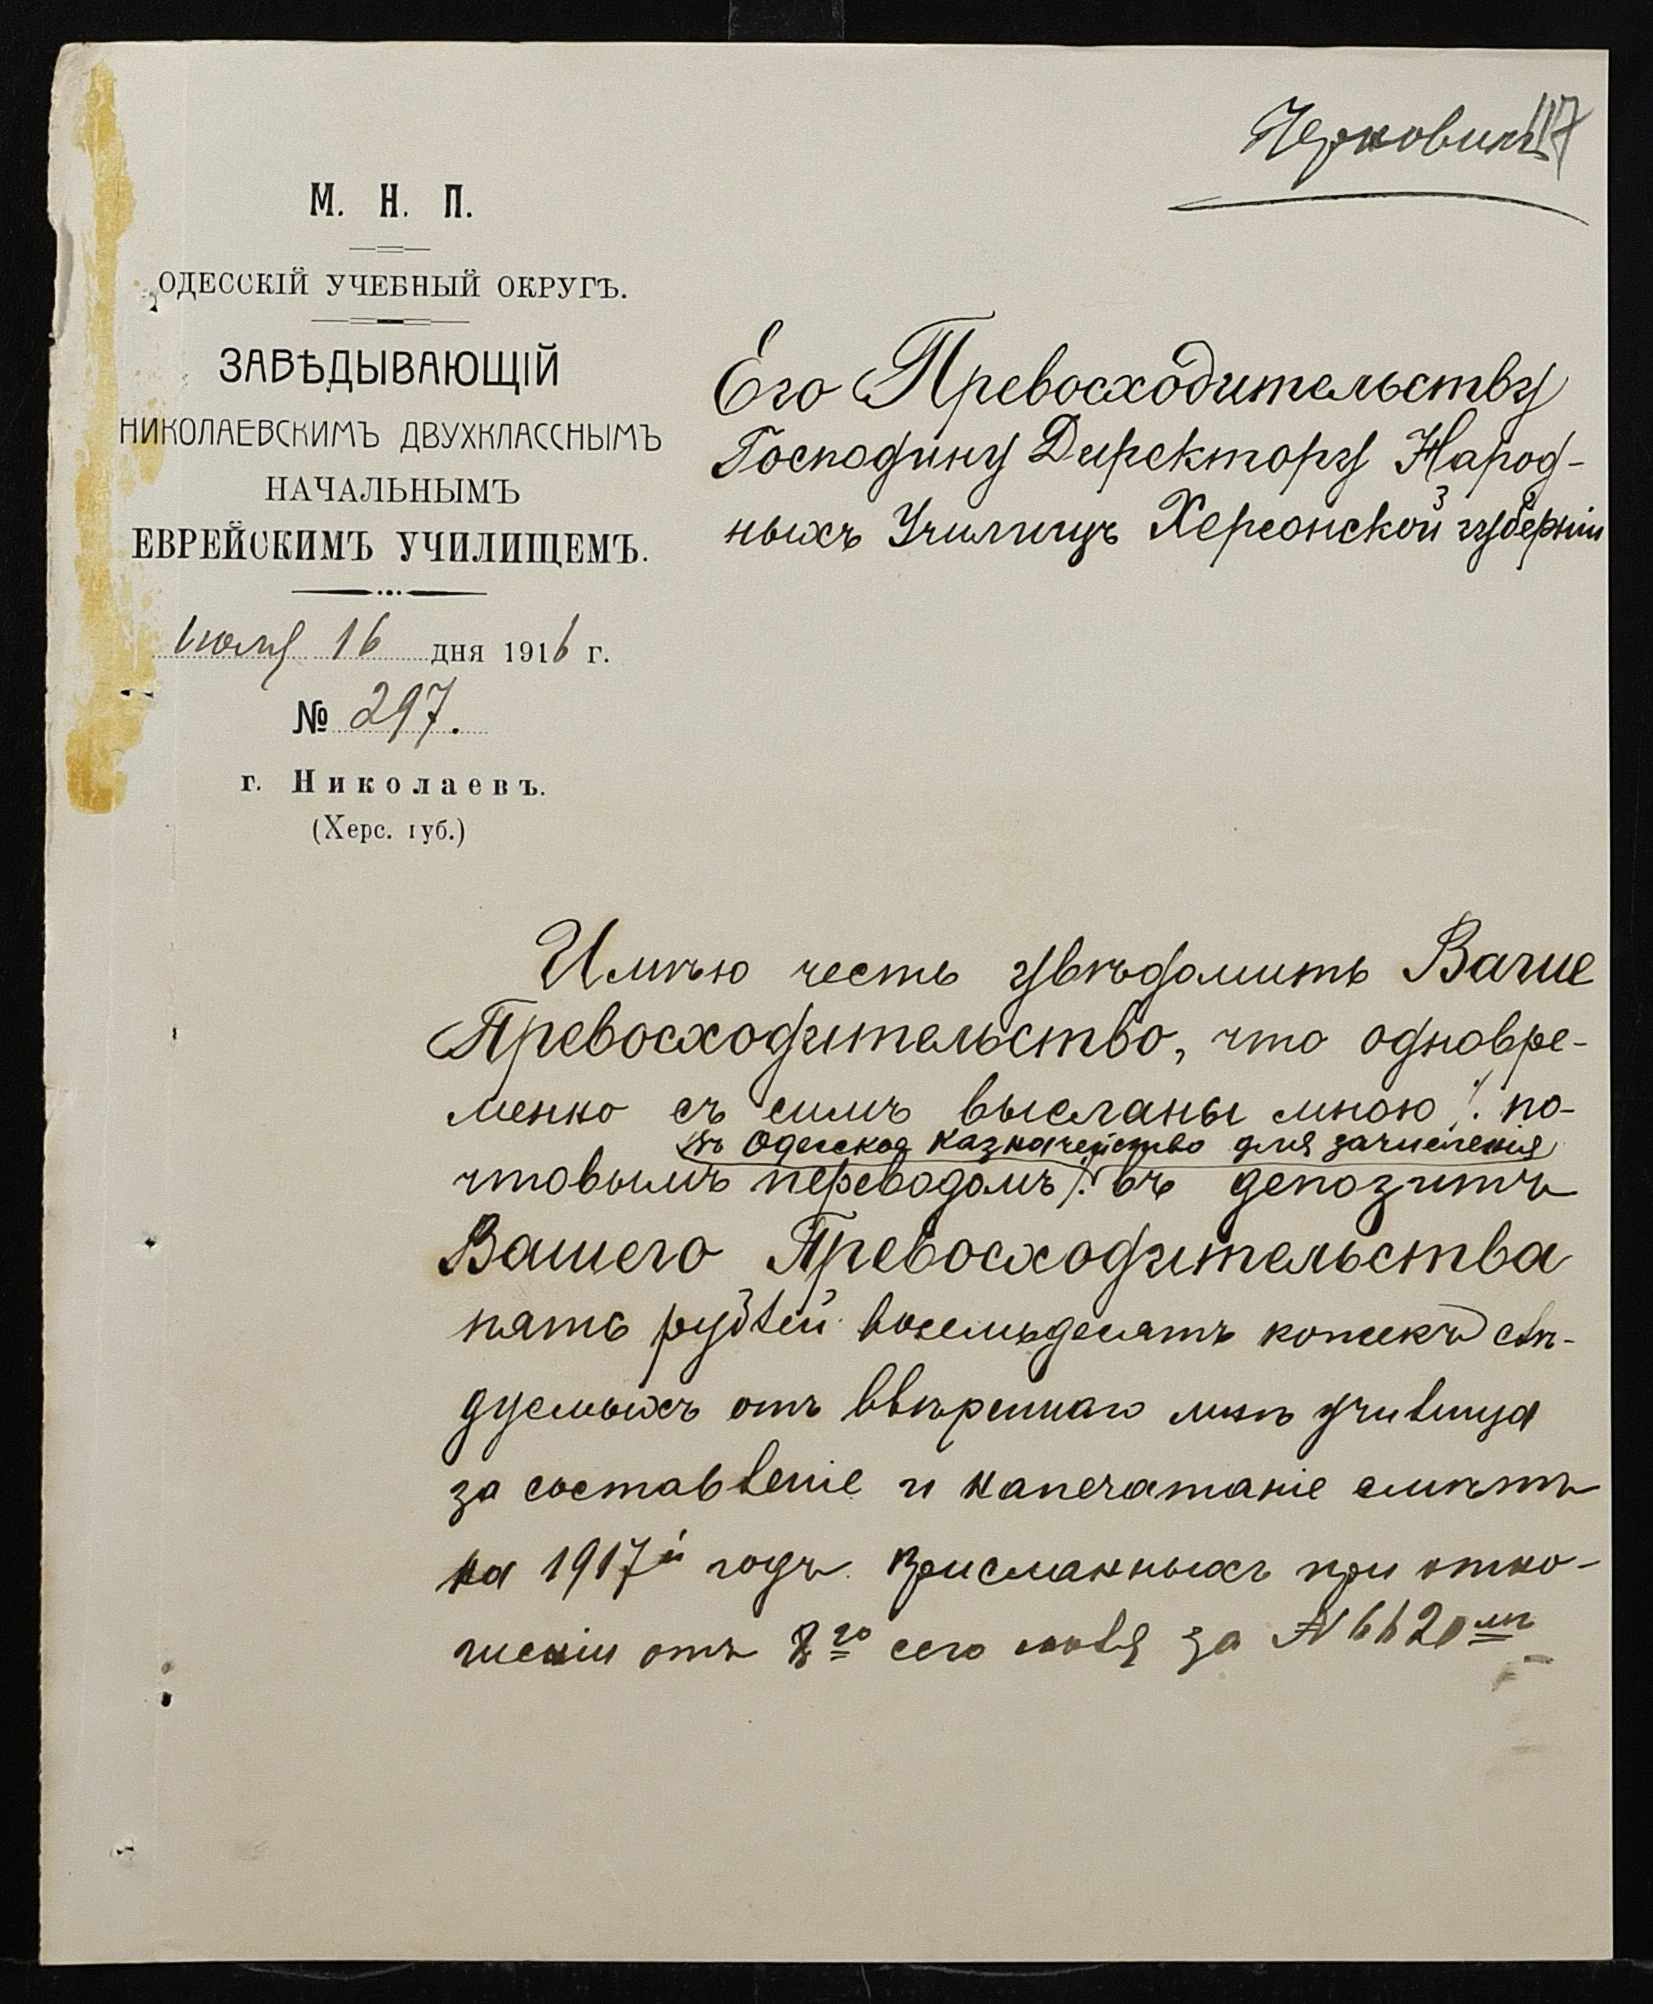 117
М. Н. П.
ОДЕССКІЙ УЧЕБНЫЙ ОКРУГЪ.
ЗАВѢДЫВАЮЩІЙ
НИКОЛАЕВСКИМЪ ДВУХКЛАССНЫМЪ
НАЧАЛЬНЫМЪ
ЕВРЕЙСКИМЪ УЧИЛИЩЕМЪ.
Іюля 16 дня 1916 г.
№ 297.
г. Николаевъ.
(Херс. губ.)
Его Превосходительству
Господину Директору Народ-
ныхъ Училищъ Херсонской губерніи
Имѣю честь увѣдомить Ваше
Превосходительство, что одновре-
менно съ симъ высланы мною по-
въ Одесское казначейство для зачисленія
чтовымъ переводомъ въ депозитъ
Вашего Превосходительства
пять рублей восемьдесятъ копеекъ слѣ-
дуемыхъ отъ ввѣреннаго мнѣ училища
за составленіе и напечатаніе смѣтъ
на 1917й годъ присланныхъ при отно-
шеніи отъ 8го сего іюля за № 6620мъ